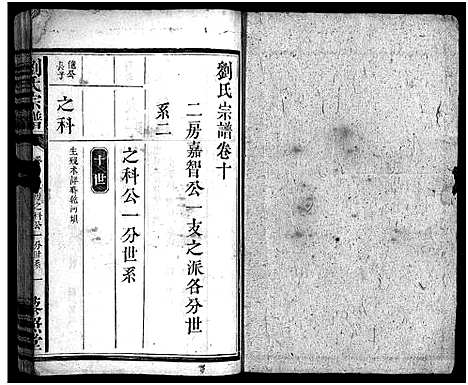 劉氏宗譜卷十
二房嘉智公一支之派各分世
系二
之科公一分世系
十世
之科
億公長子
生歿未詳葬乾河垻
劉氏宗譜
之科公一分世系
一